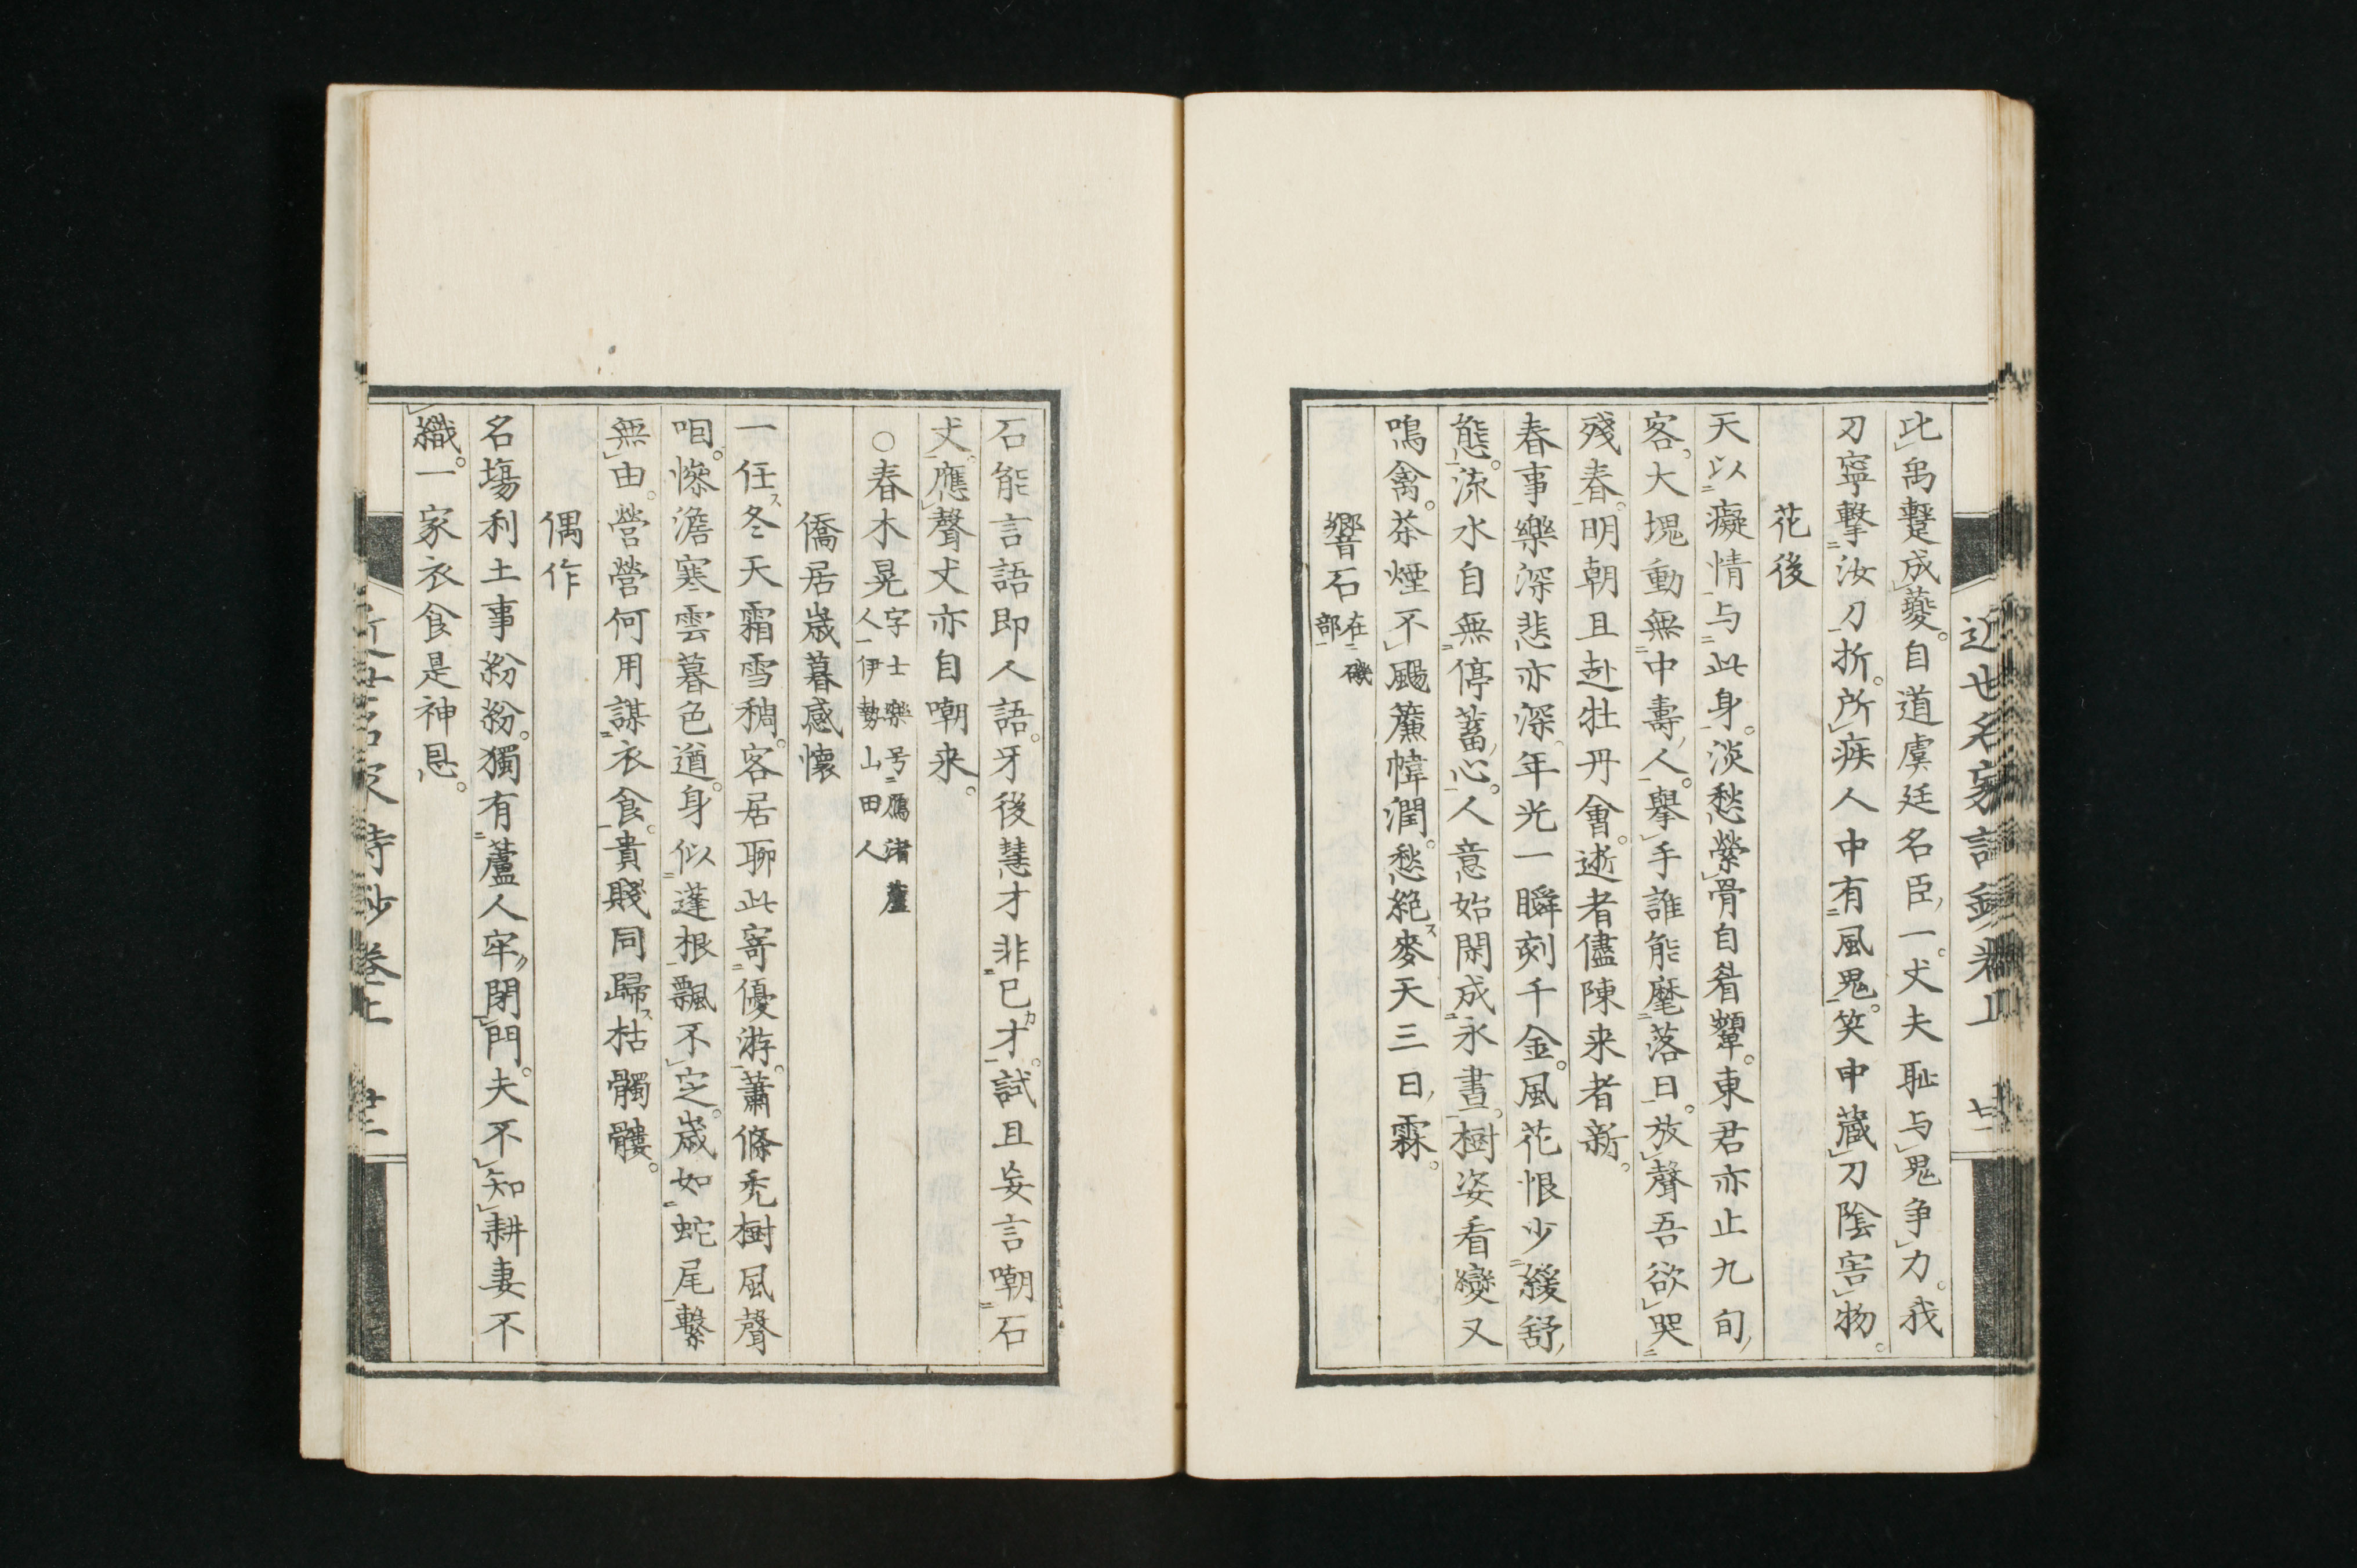 近世名家詩鈔卷上
廿一
此禹鼙成夔。自道虞廷名臣一。丈夫恥与鬼争力。我
刀寧擊汝刀折。所疾人中有風鬼。笑中藏刀陰害物。
花後
天以癡情与此身。淡愁縈骨自眉顰。東君亦止九旬
客。大塊動無中壽人。擧手誰能麾落日。放聲吾欲哭
殘春。明朝且赴牡丹會。逝者儘陳来者新。
春事樂深悲亦深。年光一瞬刻千金。風花恨少緩舒
態。流水自無停蓄心。人意始閑成永晝。樹姿看變又
鳴禽。茶煙不颺簾幃潤。愁絶麥天三日霖。
響石在磯部
石能言語即人語。牙後慧才非已才。試且妄言嘲石
丈。應聲丈亦自嘲来。
○春木晃字士樂号鴈渚蘆人伊勢山田人
僑居歳暮感懷
一任冬天霜雪稠。客居聊此寄優游。蕭條禿樹風聲
咱。慘澹寒雲暮色遒。身似蓬根飄不定。歳如蛇尾繫
無由。營營何用謀衣食。貴賤同歸枯髑髏。
偶作
名塲利土事紛紛。獨有蘆人牢閉門。夫不知耕妻不
織。一家衣食是神恩。
近世名家詩鈔卷上